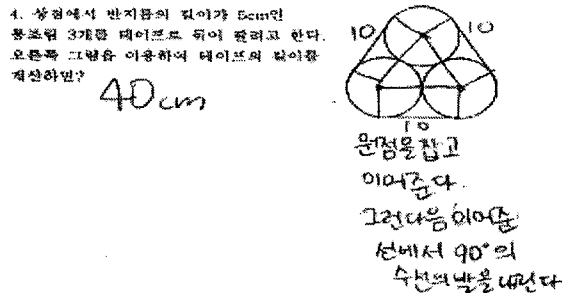 4. 상점에서 반지름의 길이가 5cm인
통조림 3개를 테이프로 묶어 팔려고 한다.
오른쪽 그림을 이용하여 테이프의 길이를
계산하면?
40cm
10
10
10
문점을잡고
이어준다.
그런다음 이어준
선에서 90°의
수선의발을내린다